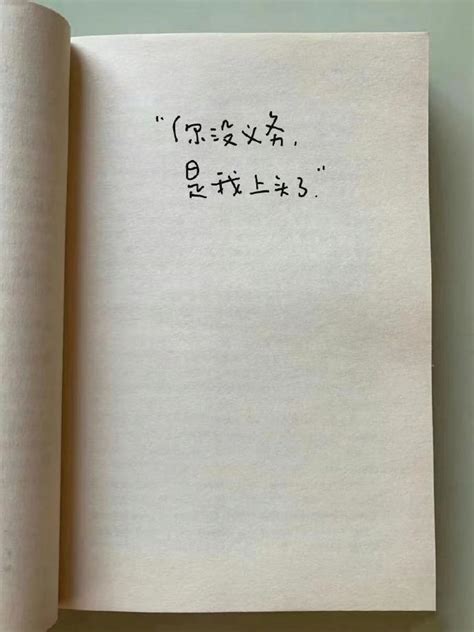 "你没义务,
是我上头了."